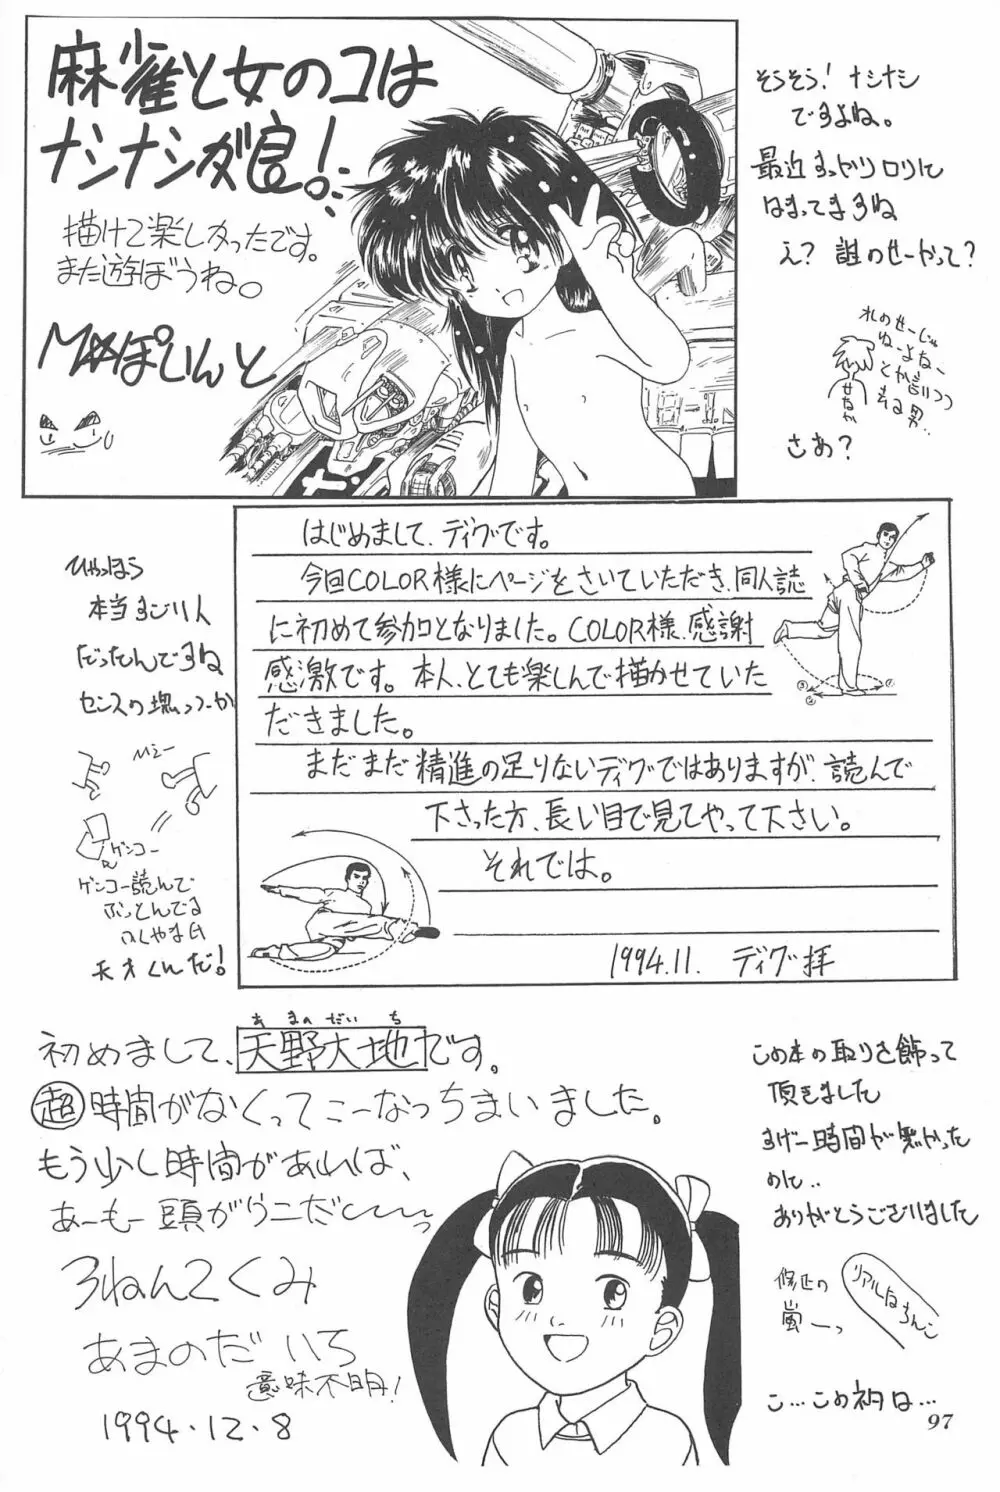 麻雀と女のコは
ナシナシが娘!
描けて楽しかったです。
また遊ぼうね。
M☆ぽいんと
そうそう!ナシナシ
ですよね。
最近すっかりロリに
はまってますね
え?誰のせーやって?
さあ?
はじめまして、ディグです。
今回COLOR様にページをさいていただき、同人誌
に初めて参加となりました。COLOR様、感謝
感激です。本人、とても楽しんで描かせていた
だきました。
まだまだ精進の足りないディグではありますが、読んで
下さった方、長い目で見てやって下さい。
それでは。
1994.11. ディグ拝
ひゃっほう
本当すごい人
だったんですね
センスの塊っつーか
ゲンコー
ゲンコー読んで
ふっとんでる
ふくやま氏
天才くんだ!
あまのだいち
初めまして、天野大地です。
超時間がなくってこーなっちまいました。
もう少し時間があれば、
あーもー頭がウニだ〜〜っ
3ねん2くみ
あまのだいち
意味不明!
1994・12・8
この本の取りを飾って
頂きました
すげー時間が無かった
のに..
ありがとうございました
修正の
嵐ーっ
リアルなちんこ
97